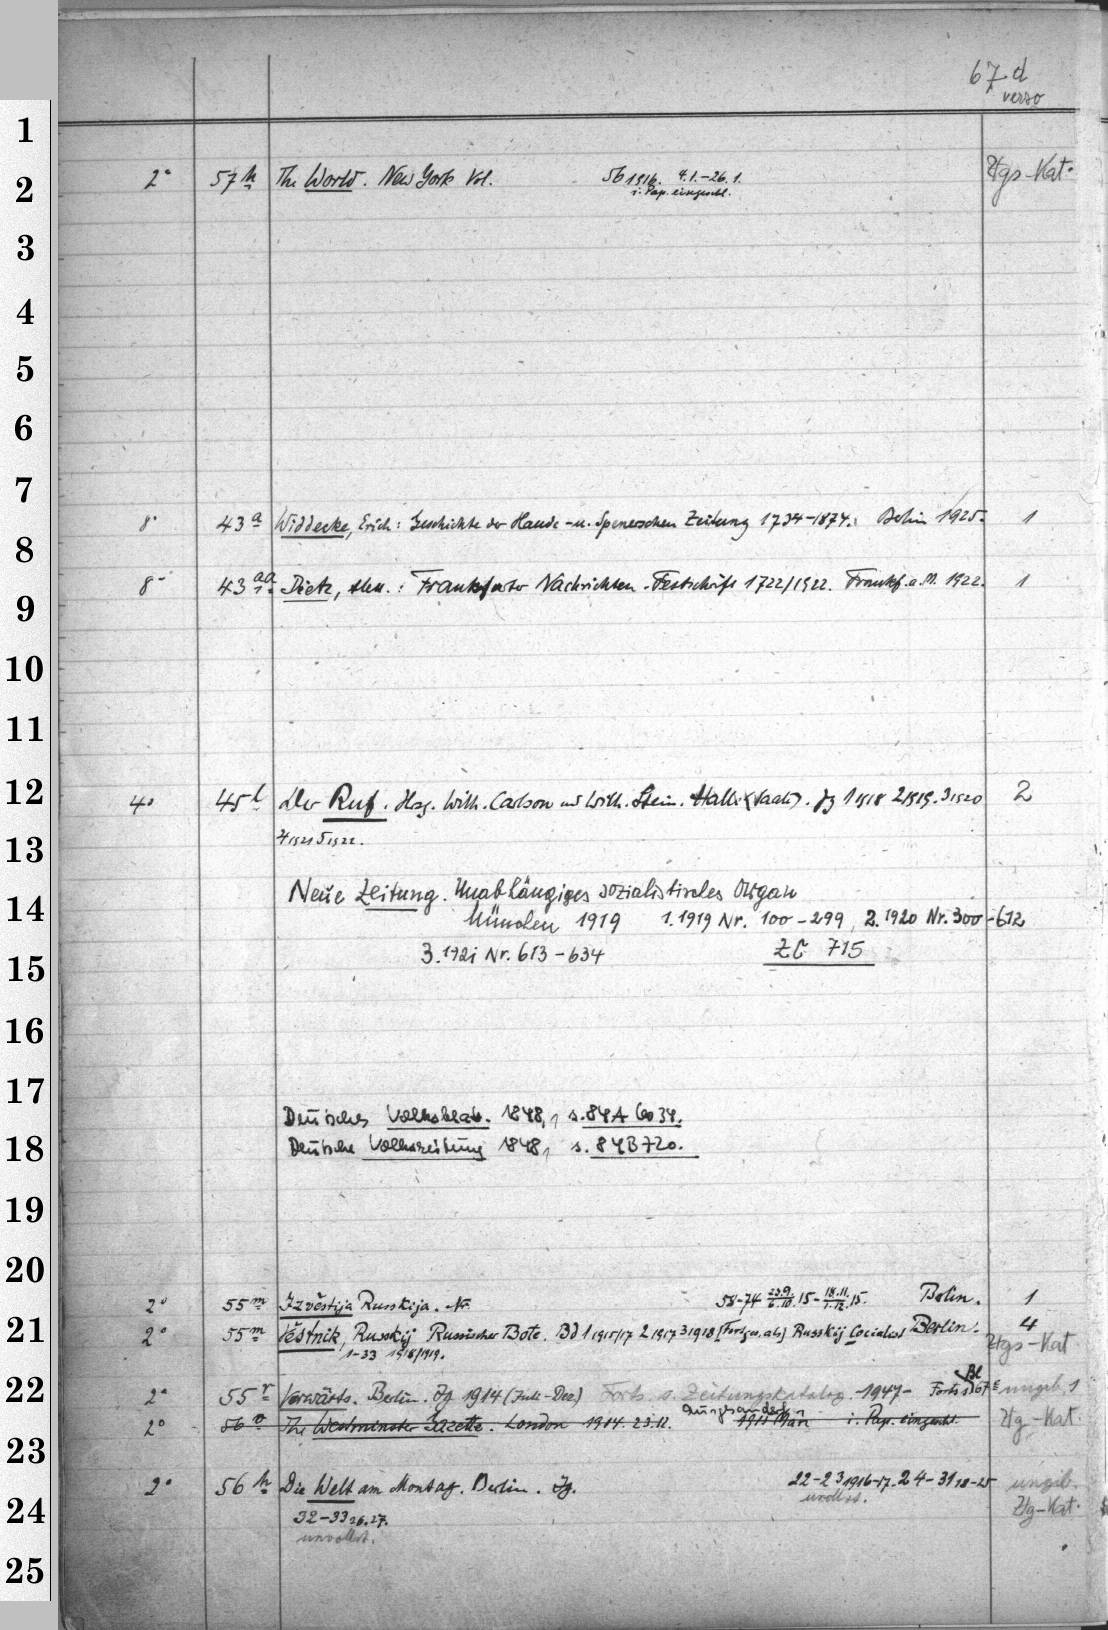 67 d
verso
1
2
2° 57 h The World. New York Vol. 56 1916. 4.1.-26.1. Ztgs-Kat.
i. Pap. eingeschl.
3
4
5
6
7
8° 43 a Widdecke, Erich: Geschichte der Haude- u. Spenerschen Zeitung 1734-1874. Berlin 1925. 1
8
8° 43 aa Dietz, Alex.: Frankfurter Nachrichten. Festschrift 1722/1922. Frankf. a. M. 1922. 1
9
10
11
12
4° 45 l Der Ruf. Hrsg. Wilh. Carlson und Wilh. Stein. Halle (Saale). Jg 1 1918 2 1919. 3 1920 2
4 1921 5 1922.
13
Neue Zeitung. Unabhängiges sozialistisches Organ
14
München 1919 1. 1919 Nr. 100-299, 2. 1920 Nr. 300-612
3. 1921 Nr. 613-634 ZC 715
15
16
17
Deutsches Volksblatt. 1848, s. 84A 6034.
18
Deutsche Volkszeitung 1848, s. 84B720.
19
20
2° 55 m Izvěstija Russkija. Nr. 58-74 23.9./6.10. 15-18.11./1.12. 15. Berlin. 1
21
2° 55 m Věstnik, Russkij Russischer Bote. Bd 1 1915/17 2 1917 3 1918 [Forts. u. als] Russkij Socialist Berlin. 4
1-33 1918/1919. Ztgs-Kat
22
2° 55 r Vorwärts. Berlin. Jg 1914 (Juli-Dez) Forts. s. Zeitungskatalog -1947- Forts. s. Bl 67 E ungeb. 1
ausgesondert
2° 56 v The Westminster Gazette. London 1914. 23.12. i. Pap. eingeschl. Ztg-Kat.
23
2° 56 h Die Welt am Montag. Berlin. Jg. 22-23 1916-17. 24-31 18-25 ungeb.
unvollst. Ztg-Kat.
24
32-33 26.27.
unvollst.
25